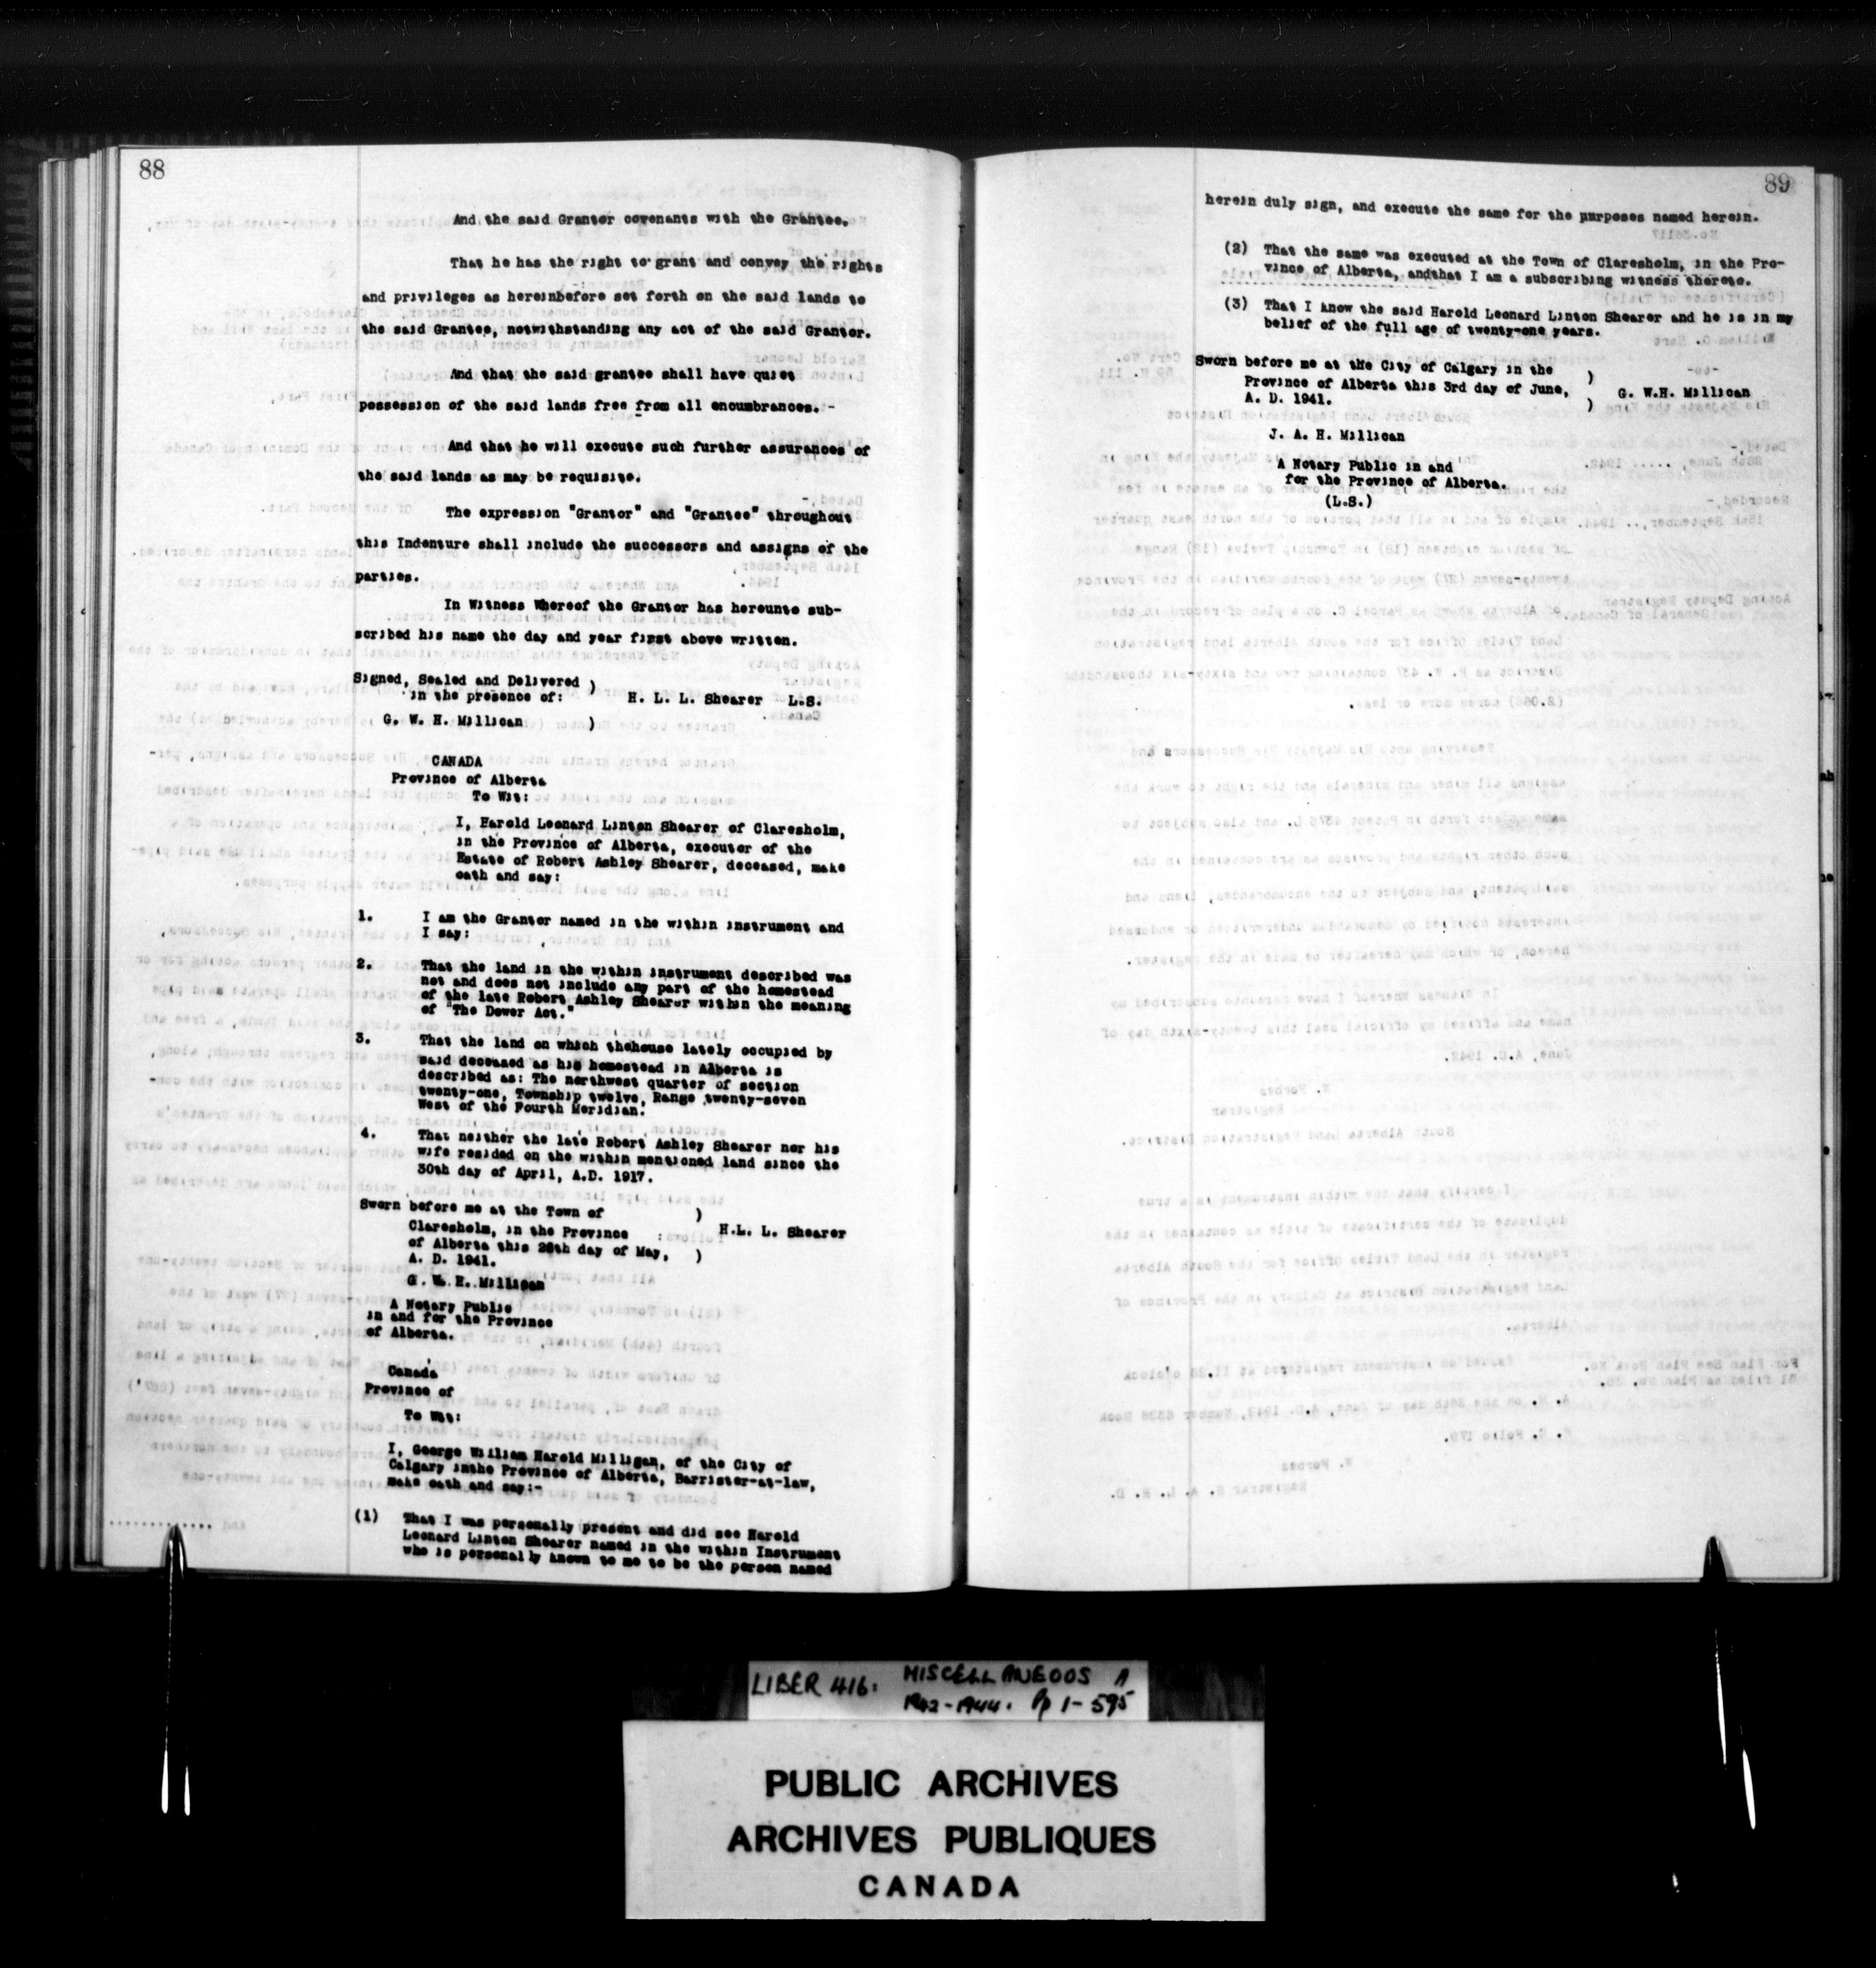 88
And the said Grantor covenants with the Grantee.
That he has the right to grant and convey the rights
and privileges as hereinbefore set forth on the said lands to
the said Grantee, notwithstanding any act of the said Grantor.
And that the said grantee shall have quiet
possession of the said lands free from all encumbrances.-
And that he will execute such further assurances of
the said lands as may be requisite.
The expression "Grantor" and "Grantee" throughout
this Indenture shall include the successors and assigns of the
parties.
In Witness Whereof the Grantor has hereunto sub-
scribed his name the day and year first above written.
Signed, Sealed and Delivered )
in the presence of: H. L. L. Shearer L.S.
G. W. H. Millican )
CANADA
Province of Alberta
To Wit:
I, Harold Leonard Linton Shearer of Claresholm,
in the Province of Alberta, executor of the
Estate of Robert Ashley Shearer, deceased, make
oath and say:
1. I am the Grantor named in the within instrument and
I say:
2. That the land in the within instrument described was
not and does not include any part of the homestead
of the late Robert Ashley Shearer within the meaning
of "The Dower Act."
3. That the land on which thehouse lately occupied by
said deceased as his homestead in Alberta is
described as: The northwest quarter of section
twenty-one, Township twelve, Range twenty-seven
West of the Fourth Meridian.
4. That neither the late Robert Ashley Shearer nor his
wife resided on the within mentioned land since the
30th day of April, A.D. 1917.
Sworn before me at the Town of )
Claresholm, in the Province H.L. L. Shearer
of Alberta this 28th day of May, )
A. D. 1941.
G. W. H. Millican
A Notary Public
in and for the Province
of Alberta.
Canada
Province of
To Wit:
I, George William Harold Milligan, of the City of
Calgary inthe Province of Alberta, Barrister-at-law,
make oath and say:-
(1) That I was personally present and did see Harold
Leonard Linton Shearer named in the within Instrument
who is personally known to me to be the person named
89
herein duly sign, and execute the same for the purposes named herein.
(2) That the same was executed at the Town of Claresholm, in the Pro-
vince of Alberta, andthat I am a subscribing witness thereto.
(3) That I know the said Harold Leonard Linton Shearer and he is in my
belief of the full age of twenty-one years.
Sworn before me at the City of Calgary in the )
Province of Alberta this 3rd day of June, G. W.H. Millican
A. D. 1941. )
J. A. H. Millican
A Notary Public in and
for the Province of Alberta.
(L.S.)
LIBER 416: MISCELLANEOUS A
1942-1944. Pp 1-595
PUBLIC ARCHIVES
ARCHIVES PUBLIQUES
CANADA